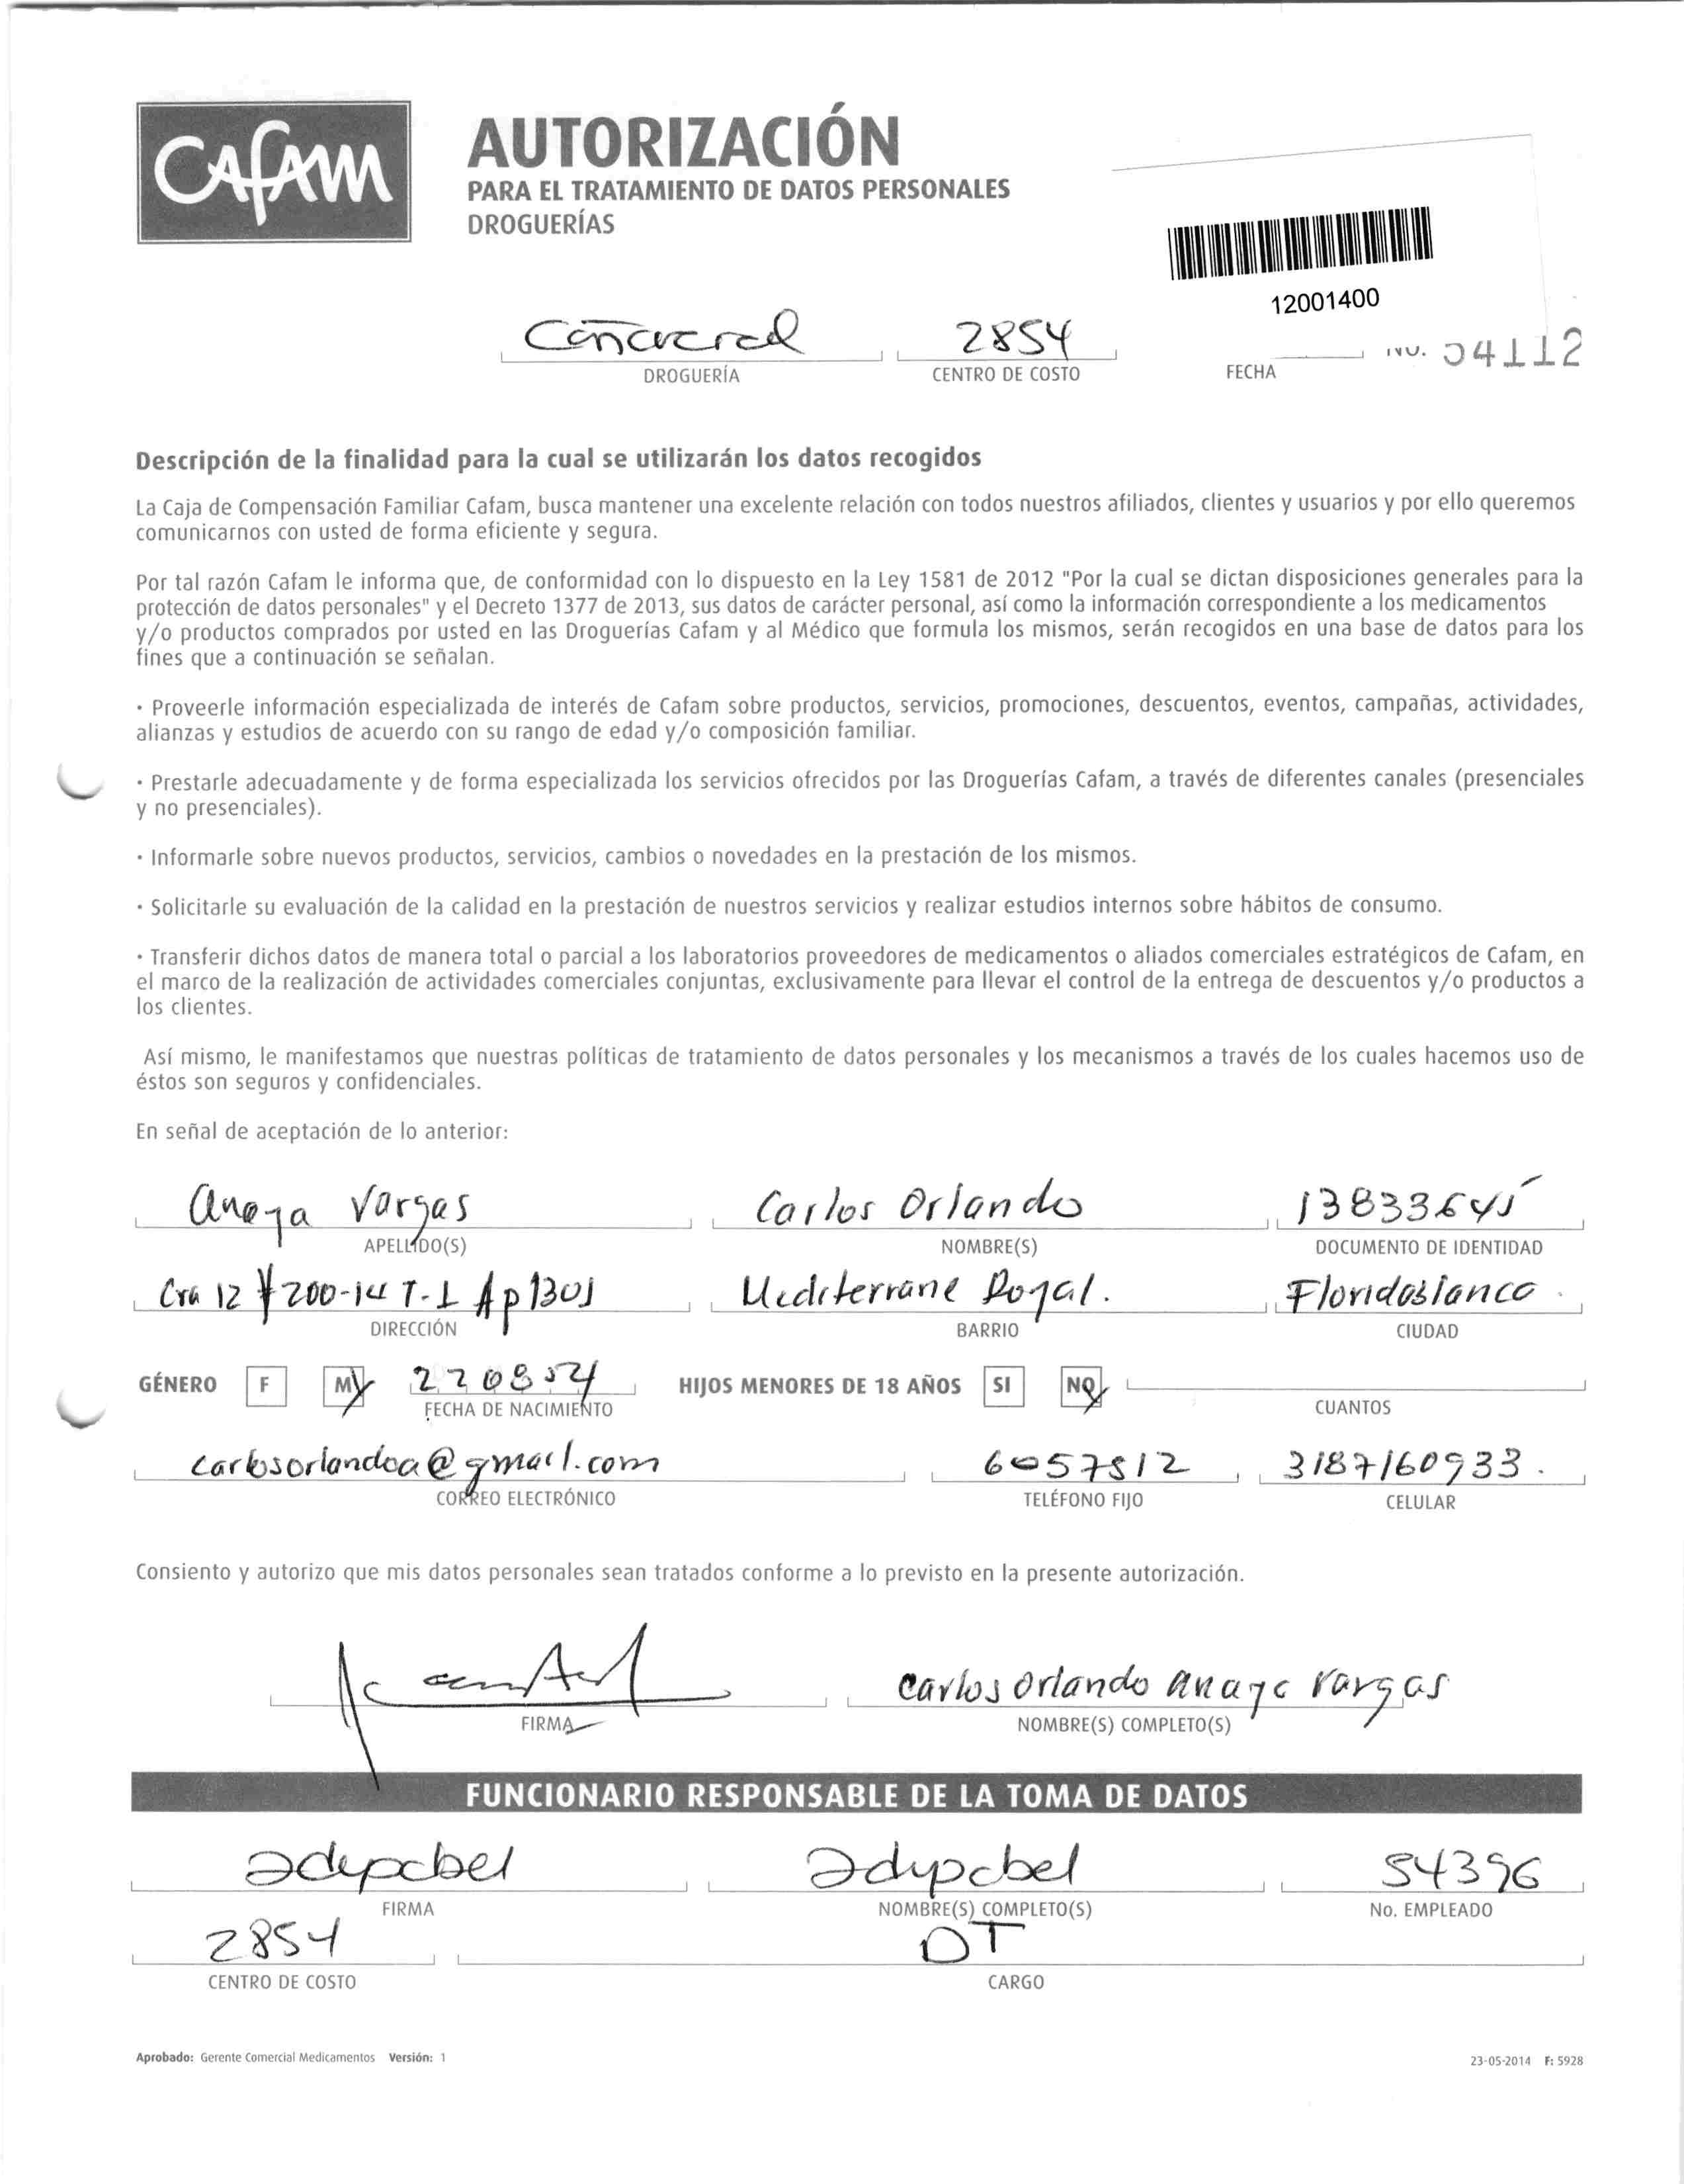 Cafam
AUTORIZACIÓN
PARA EL TRATAMIENTO DE DATOS PERSONALES
DROGUERÍAS
12001400
Cañaveral 2854 No. 04112
DROGUERÍA CENTRO DE COSTO FECHA
Descripción de la finalidad para la cual se utilizarán los datos recogidos
La Caja de Compensación Familiar Cafam, busca mantener una excelente relación con todos nuestros afiliados, clientes y usuarios y por ello queremos
comunicarnos con usted de forma eficiente y segura.
Por tal razón Cafam le informa que, de conformidad con lo dispuesto en la Ley 1581 de 2012 "Por la cual se dictan disposiciones generales para la
protección de datos personales" y el Decreto 1377 de 2013, sus datos de carácter personal, así como la información correspondiente a los medicamentos
y/o productos comprados por usted en las Droguerías Cafam y al Médico que formula los mismos, serán recogidos en una base de datos para los
fines que a continuación se señalan.
· Proveerle información especializada de interés de Cafam sobre productos, servicios, promociones, descuentos, eventos, campañas, actividades,
alianzas y estudios de acuerdo con su rango de edad y/o composición familiar.
· Prestarle adecuadamente y de forma especializada los servicios ofrecidos por las Droguerías Cafam, a través de diferentes canales (presenciales
y no presenciales).
· Informarle sobre nuevos productos, servicios, cambios o novedades en la prestación de los mismos.
· Solicitarle su evaluación de la calidad en la prestación de nuestros servicios y realizar estudios internos sobre hábitos de consumo.
· Transferir dichos datos de manera total o parcial a los laboratorios proveedores de medicamentos o aliados comerciales estratégicos de Cafam, en
el marco de la realización de actividades comerciales conjuntas, exclusivamente para llevar el control de la entrega de descuentos y/o productos a
los clientes.
Así mismo, le manifestamos que nuestras políticas de tratamiento de datos personales y los mecanismos a través de los cuales hacemos uso de
éstos son seguros y confidenciales.
En señal de aceptación de lo anterior:
Anaya Vargas Carlos Orlando 13833645
APELLIDO(S) NOMBRE(S) DOCUMENTO DE IDENTIDAD
Cra 12 # 200-14 T-1 Ap 1301 Mediterrane Royal. Floridablanca
DIRECCIÓN BARRIO CIUDAD
GÉNERO F M 220854 HIJOS MENORES DE 18 AÑOS SI NO
FECHA DE NACIMIENTO CUANTOS
carlosorlandoa@gmail.com 6057812 3187160933.
CORREO ELECTRÓNICO TELÉFONO FIJO CELULAR
Consiento y autorizo que mis datos personales sean tratados conforme a lo previsto en la presente autorización.
Carlos Orlando Anaya Vargas
FIRMA NOMBRE(S) COMPLETO(S)
FUNCIONARIO RESPONSABLE DE LA TOMA DE DATOS
54396
FIRMA NOMBRE(S) COMPLETO(S) No. EMPLEADO
2854 DT
CENTRO DE COSTO CARGO
Aprobado: Gerente Comercial Medicamentos Versión: 1 23-05-2014 F: 5928